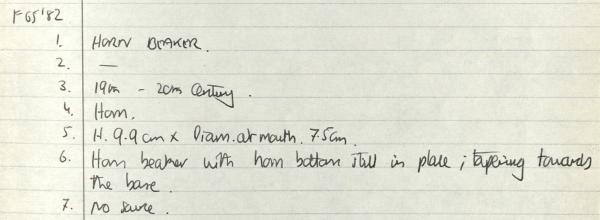 FG5'82
1. HORN BEAKER.
2. —
3. 19th - 20th Century.
4. Horn.
5. H. 9.9cm x Diam. at mouth. 7.5cm.
6. Horn beaker with horn bottom still in place; tapering towards
the base.
7. No source.